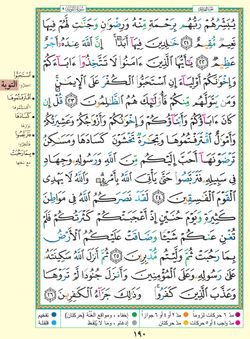 يُبَشِّرُهُمْ رَبُّهُم بِرَحْمَةٍ مِّنْهُ وَرِضْوَٰنٍ وَجَنَّٰتٍ لَّهُمْ فِيهَا
نَعِيمٌ مُّقِيمٌ ٢١ خَٰلِدِينَ فِيهَآ أَبَدًا إِنَّ ٱللَّهَ عِندَهُۥٓ أَجْرٌ
عَظِيمٌ ٢٢ يَٰٓأَيُّهَا ٱلَّذِينَ ءَامَنُوا۟ لَا تَتَّخِذُوٓا۟ ءَابَآءَكُمْ
وَإِخْوَٰنَكُمْ أَوْلِيَآءَ إِنِ ٱسْتَحَبُّوا۟ ٱلْكُفْرَ عَلَى ٱلْإِيمَٰنِ
وَمَن يَتَوَلَّهُم مِّنكُمْ فَأُو۟لَٰٓئِكَ هُمُ ٱلظَّٰلِمُونَ ٢٣ قُلْ إِن كَانَ
ءَابَآؤُكُمْ وَأَبْنَآؤُكُمْ وَإِخْوَٰنُكُمْ وَأَزْوَٰجُكُمْ وَعَشِيرَتُكُمْ
وَأَمْوَٰلٌ ٱقْتَرَفْتُمُوهَا وَتِجَٰرَةٌ تَخْشَوْنَ كَسَادَهَا وَمَسَٰكِنُ
تَرْضَوْنَهَآ أَحَبَّ إِلَيْكُم مِّنَ ٱللَّهِ وَرَسُولِهِۦ وَجِهَادٍ
فِى سَبِيلِهِۦ فَتَرَبَّصُوا۟ حَتَّىٰ يَأْتِىَ ٱللَّهُ بِأَمْرِهِۦ وَٱللَّهُ لَا يَهْدِى
ٱلْقَوْمَ ٱلْفَٰسِقِينَ ٢٤ لَقَدْ نَصَرَكُمُ ٱللَّهُ فِى مَوَاطِنَ
كَثِيرَةٍ وَيَوْمَ حُنَيْنٍ إِذْ أَعْجَبَتْكُمْ كَثْرَتُكُمْ فَلَمْ
تُغْنِ عَنكُمْ شَيْـًٔا وَضَاقَتْ عَلَيْكُمُ ٱلْأَرْضُ
بِمَا رَحُبَتْ ثُمَّ وَلَّيْتُم مُّدْبِرِينَ ٢٥ ثُمَّ أَنزَلَ ٱللَّهُ سَكِينَتَهُۥ
عَلَىٰ رَسُولِهِۦ وَعَلَى ٱلْمُؤْمِنِينَ وَأَنزَلَ جُنُودًا لَّمْ تَرَوْهَا
وَعَذَّبَ ٱلَّذِينَ كَفَرُوا۟ وَذَٰلِكَ جَزَآءُ ٱلْكَٰفِرِينَ ٢٦
التوبة
١٩٠